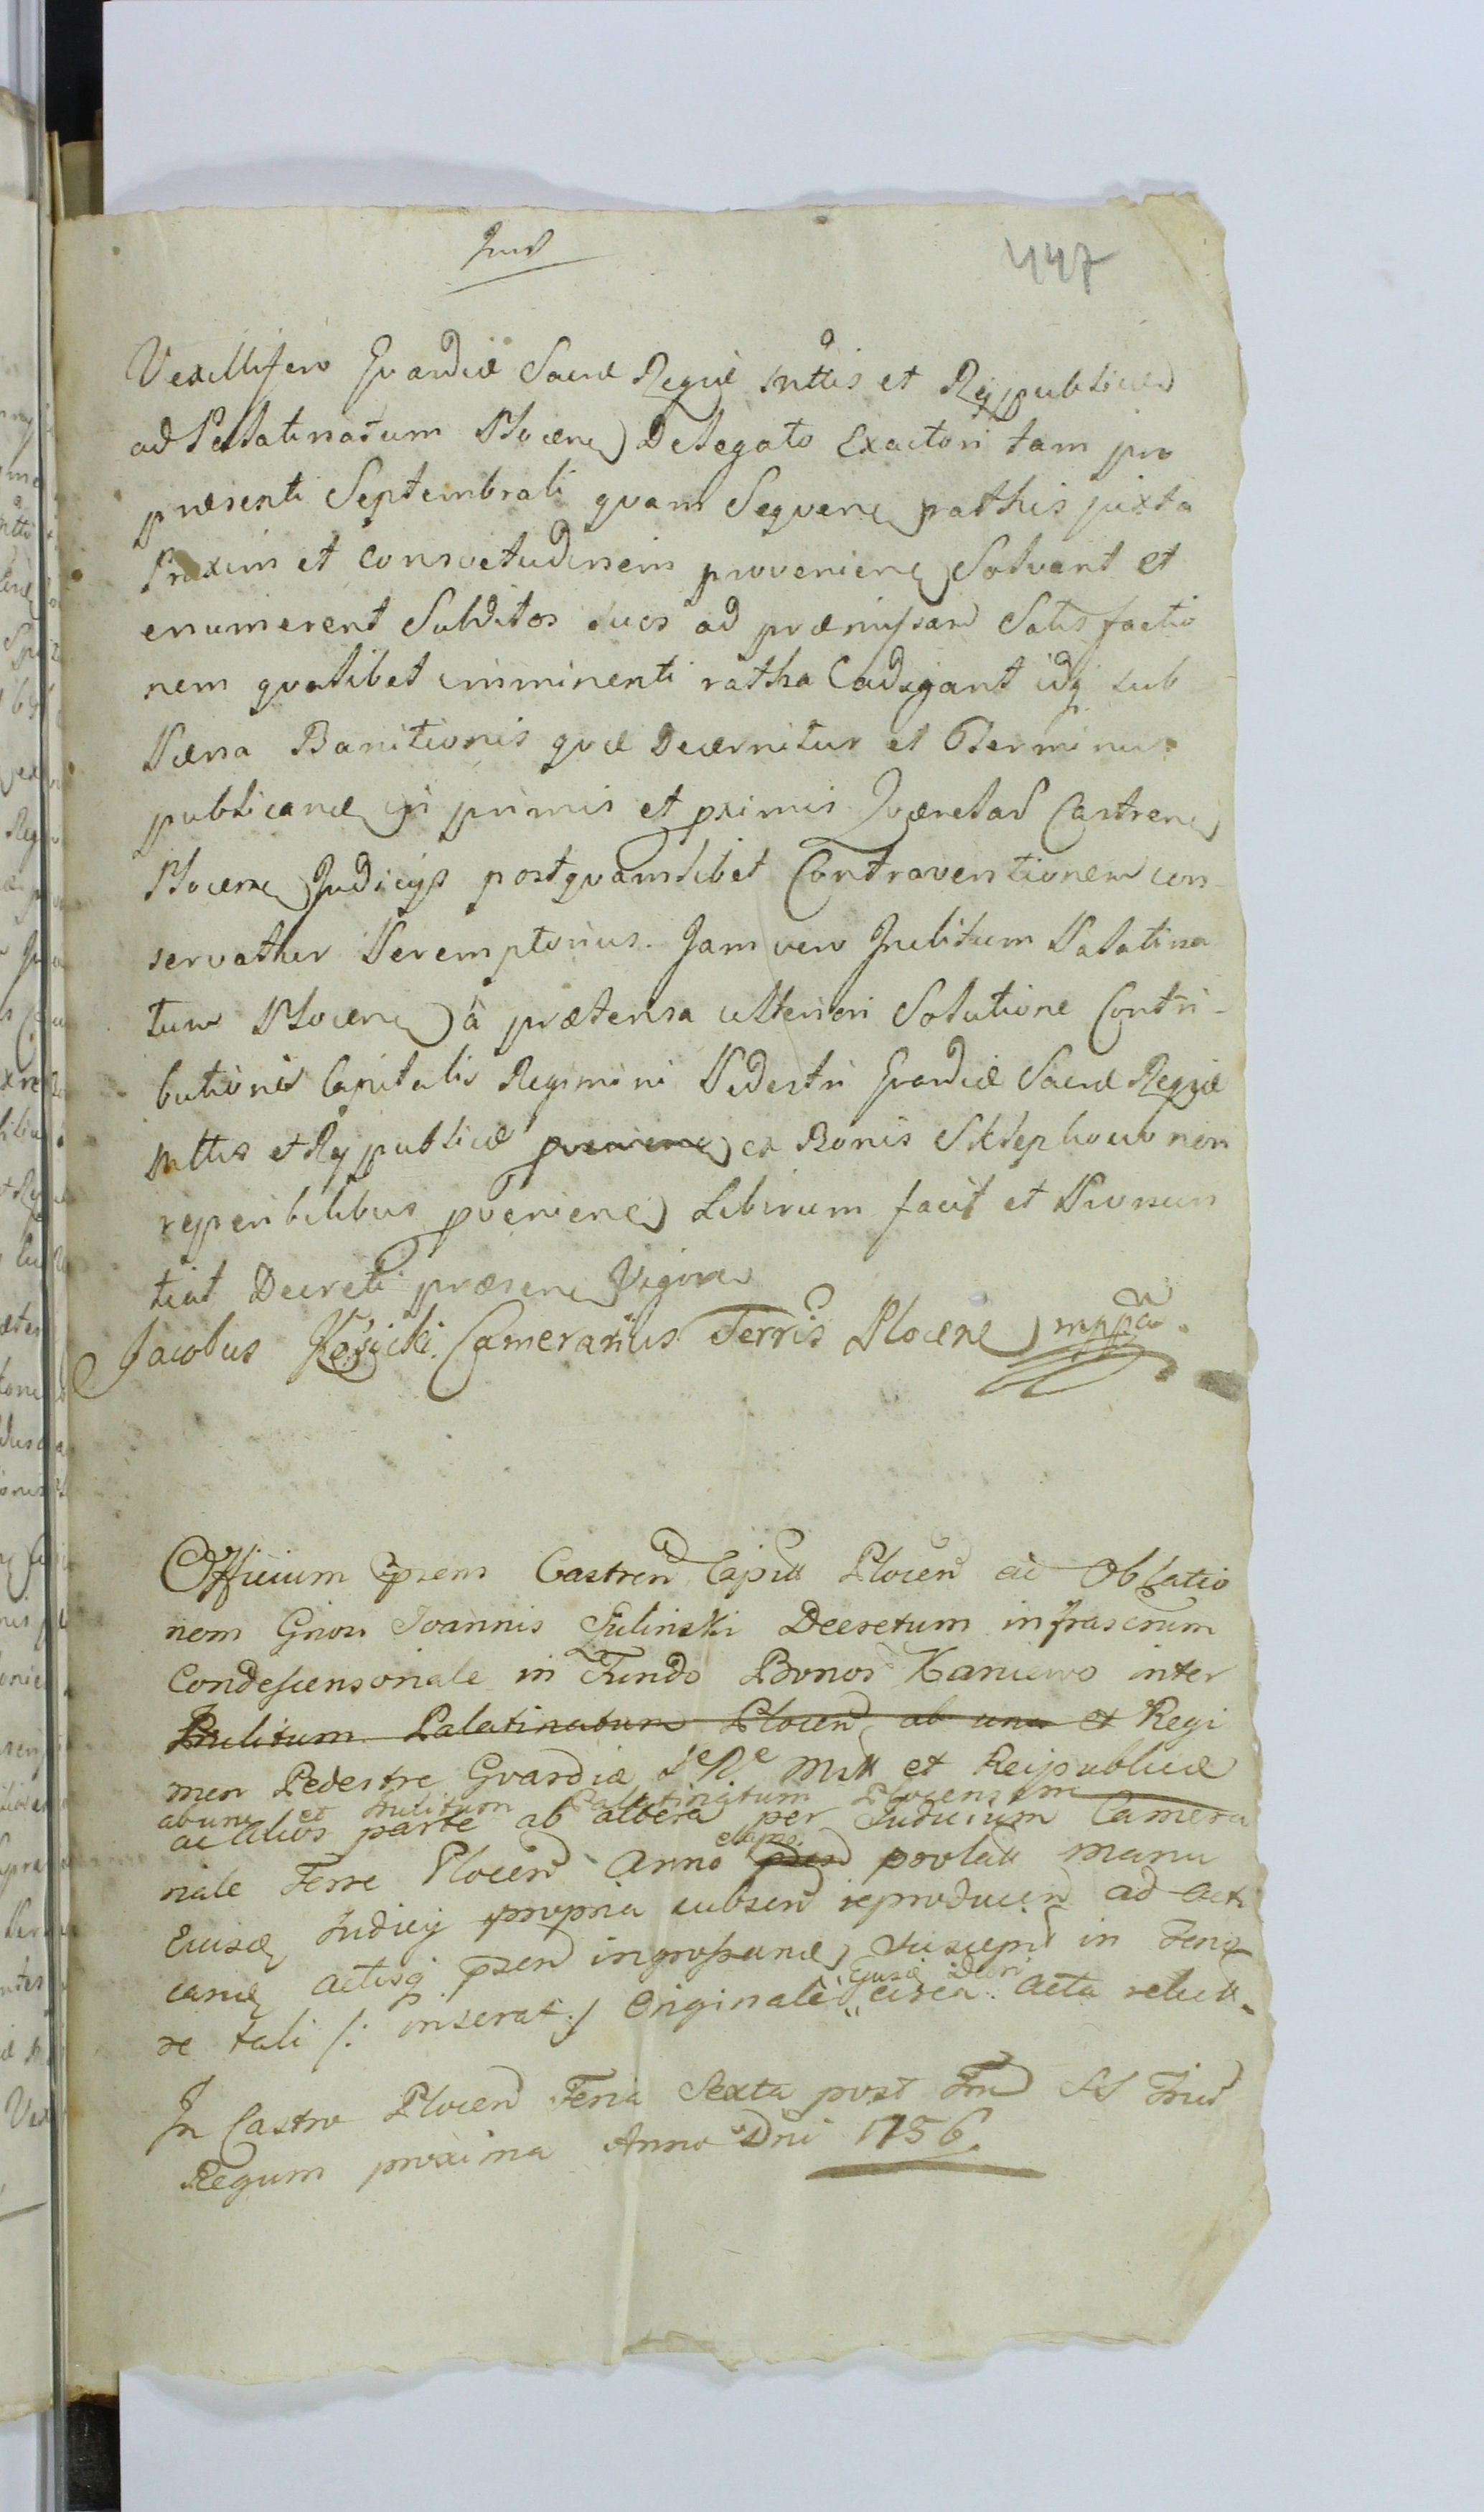 447
Vexillifero Gvardiæ Sacræ Regiæ Mttis et Rejpublicæ
ad Pallatinatum Plocen Delegato Exactori tam pro
præsenti Septembrali qvam Seqven rathis juxta
Praxim et Consvetudinem provenien Solvant et
enumerent Subditos suos ad præmissam Satisfactio
nem qvalibet imminenti ratha Cadigant idq sub
Pæna Banitionis qvæ Decernitur et Terminus
publicand in primis et pximis Qværelar Castren
Plocen Judicijs postqvamlibet Contraventionem con-
servathur Peremptorius. Jam vero Inclitum Palatina
tum Plocen à prætensa ulteriori Solutione Contri-
butionis Capitalis Regimini Pedestri Gvardiæ Sacræ Regiæ
Mttis et Rejpublicæ provenien ex Bonis Sklephowo non
reperibilibus pvenien Liberum facit et Pronun
tiat Decreti præsen Vigore
Jacobus Camerarius Terris Plocen mppa
Officium psens Castren Capitt Plocen ad Oblatio
nem Gnosi Joannis Julinski Decretum infrascrum
Condescensoriale in Fundo Bonor Kaniewo inter
Inclitum Palatinatum Plocen ab una et Regi
men Pedestre Gvardiæ S R Mtt et Reipublicæ
ab una et Inclitum Palatinatum Plocensem
ac alios parte ab altera per Judicium Camera
riale Terre Plocen Anno psen prolatt manu
elapso
Eiusd Judicij propria subscri reproducen ad acti
cand Actisq psen ingrossand Suscepit in Teno
re tali /: inserat :/ Originale circa Acta relictt.
Eiusd Decri
In Castro Plocen Feria Sexta post Fm SS Trium
Regum proxima Anno Dni 1756.